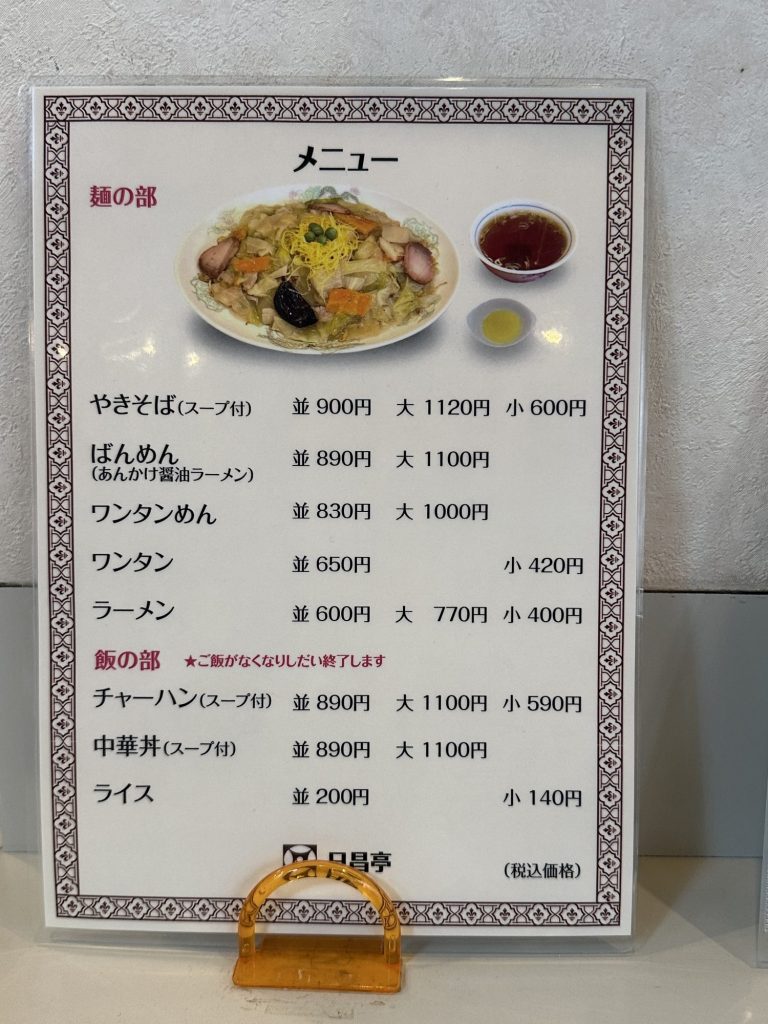 メニュー
麺の部
やきそば(スープ付) 並 900円 大 1120円 小 600円
ばんめん 並 890円 大 1100円
(あんかけ醤油ラーメン)
ワンタンめん 並 830円 大 1000円
ワンタン 並 650円 小 420円
ラーメン 並 600円 大 770円 小 400円
飯の部 ★ご飯がなくなりしだい終了します
チャーハン(スープ付) 並 890円 大 1100円 小 590円
中華丼(スープ付) 並 890円 大 1100円
ライス 並 200円 小 140円
日昌亭
(税込価格)